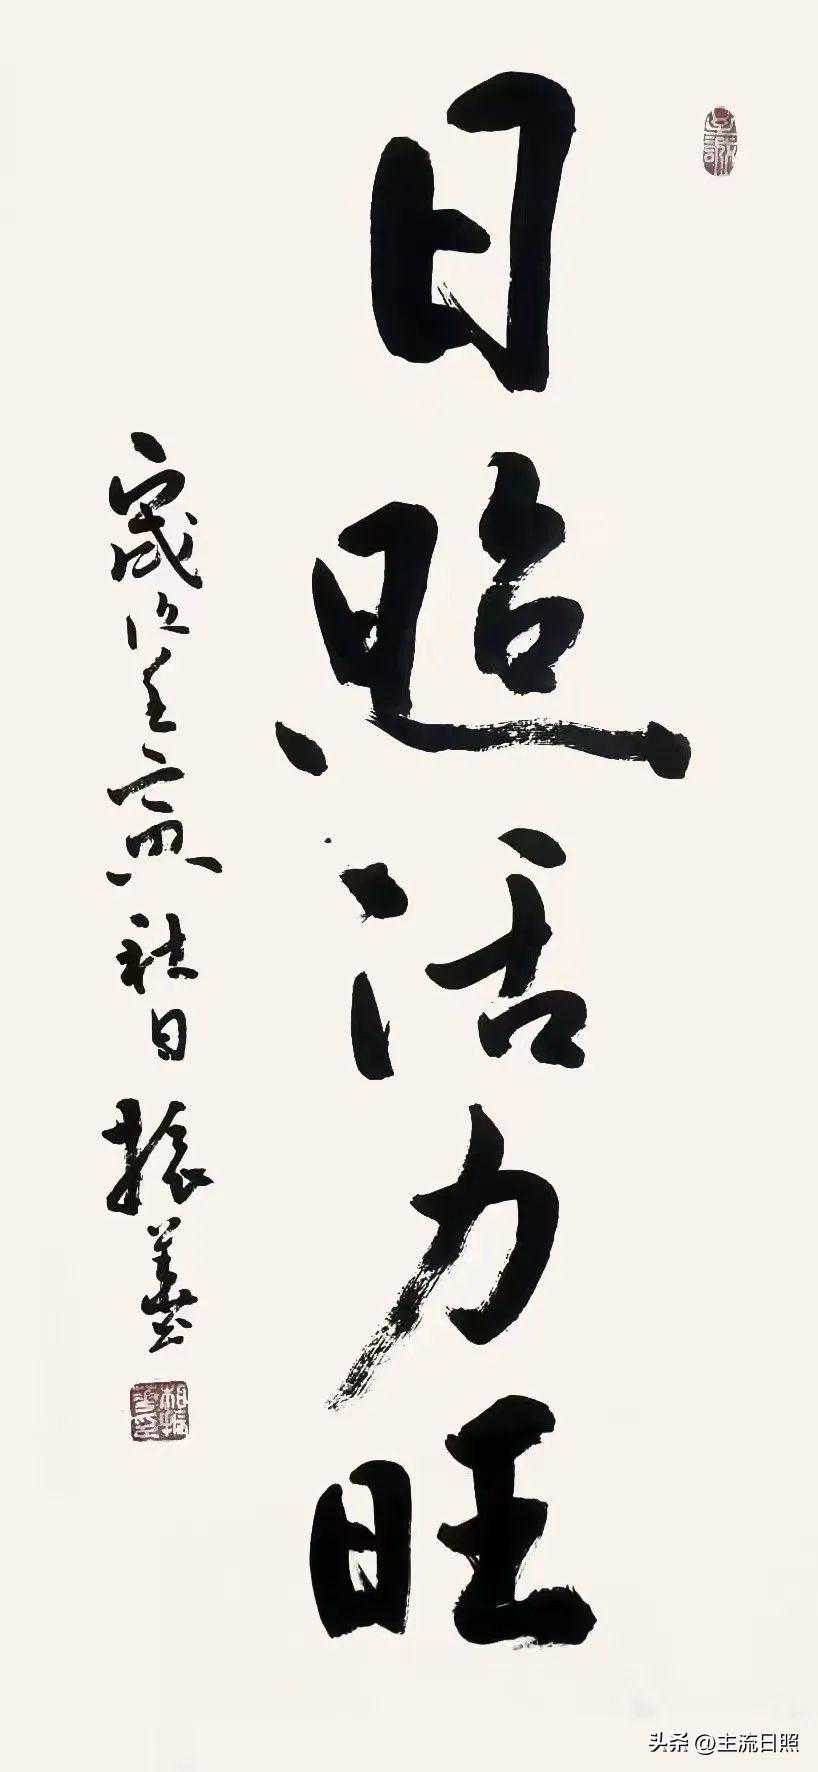 日照活力旺
歲次壬寅秋日振
头条 @主流日照